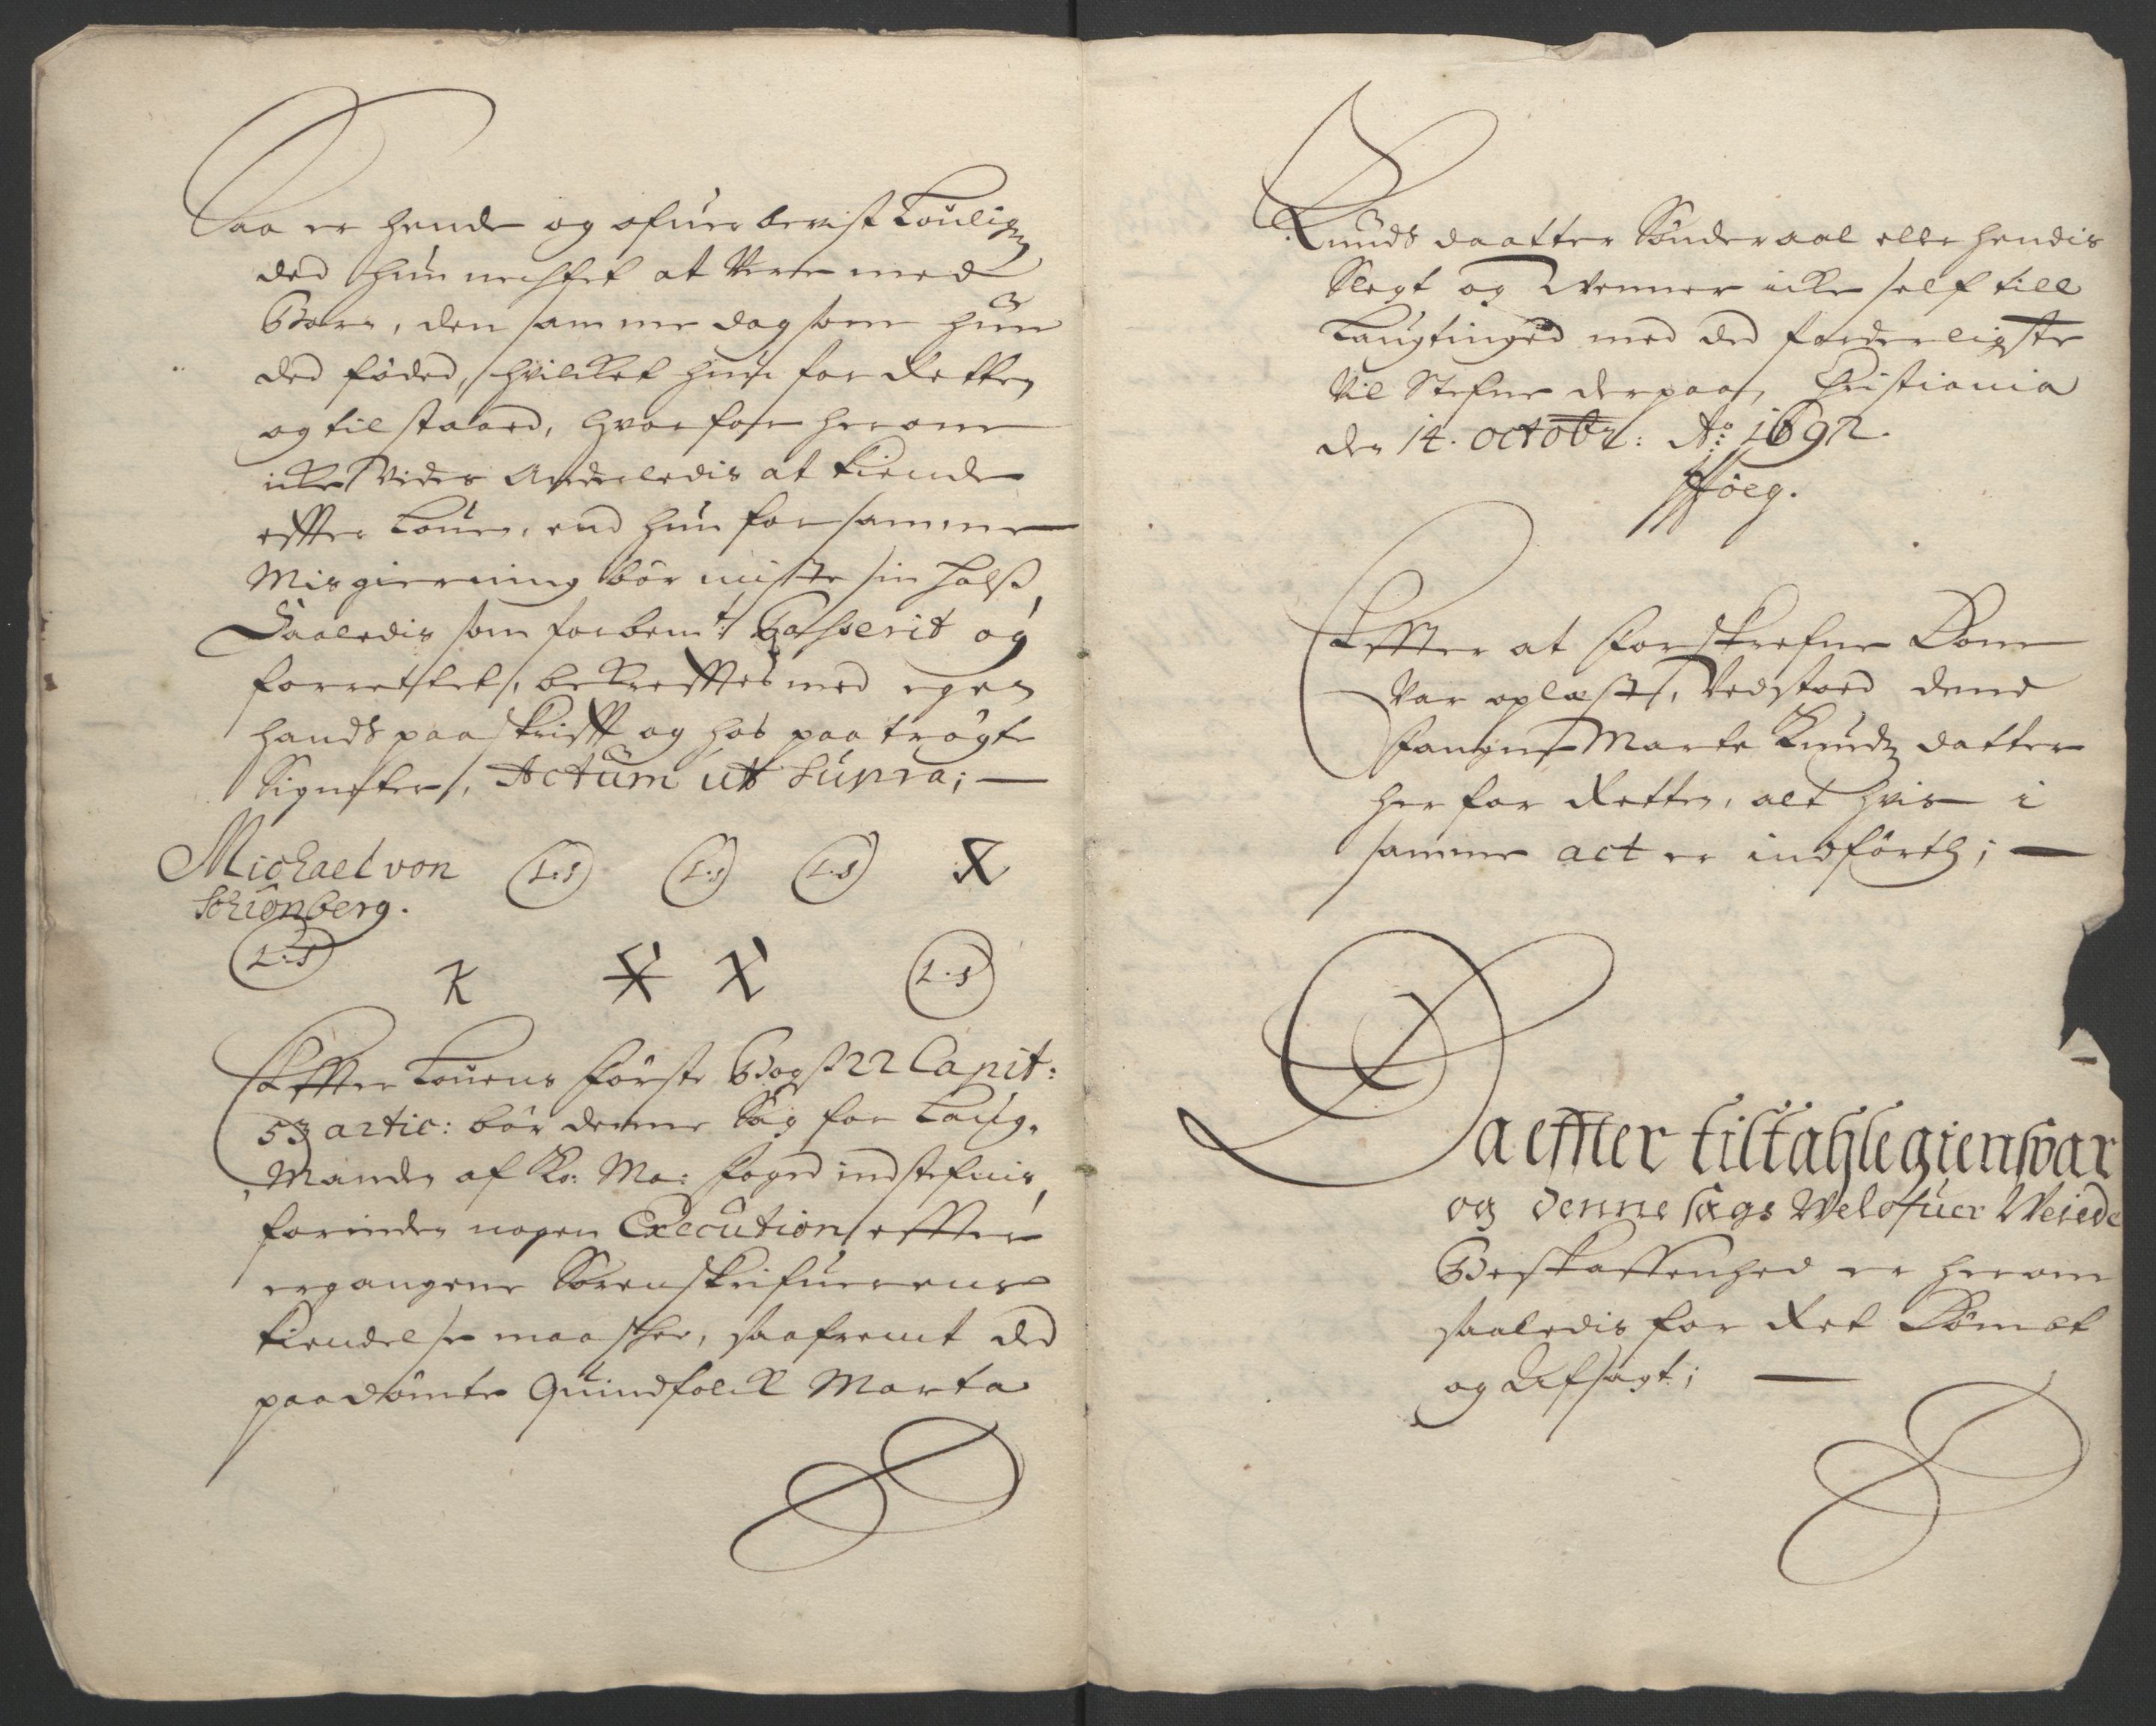 Saa er hende og ofuer bevist Loulig
ded hun nechtet at Vere med
Barn, den samme dag som hun
ded føded, hvilcket hun for Retten
og tilstaard, hvorfor herom
icke Vides Anderledis at kiende
effter Louen, end hun for samme
Misgierning bør miste sin halß,
Saaledis som forbemt: Passerit og
forrettet, bekrefftes med egen
hands paaskrifft og hos paatrøgte
Signeter, Actum ut Supra; —
Michael von L:S L:S L:S X
Schiønberg.
L:S K X X L:S
Effter Louens første Bogß 22 Capit:
53 artic: bør denne Sag for Laug-
Manden af Ko: Ma: foged indstefnis,
forinden nogen Execution effter
ergangene Sorenskrifuerens
kiendelse maa skee, saafremt ded
paadømte Quindfolck Marta
Knuds daatter Sønderaal eller hendis
Slegt og Wenner icke self till
Laugtinged med ded forderligste
Vil Stefne derpaa, Christiania
den 14. octobr: Ao: 1692.
Effter at forskrefne Dom
Var oplæst, Vedstoed dend
fangne Marte Knudz datter
her for Retten, alt hvis i
samme act er indførth; —
Da effter tiltahle gienswar
og denne sags Wel ofuer Weiede
Beskaffenhed er herom
saaledis for Ret Dømbt
og Afsagt; —